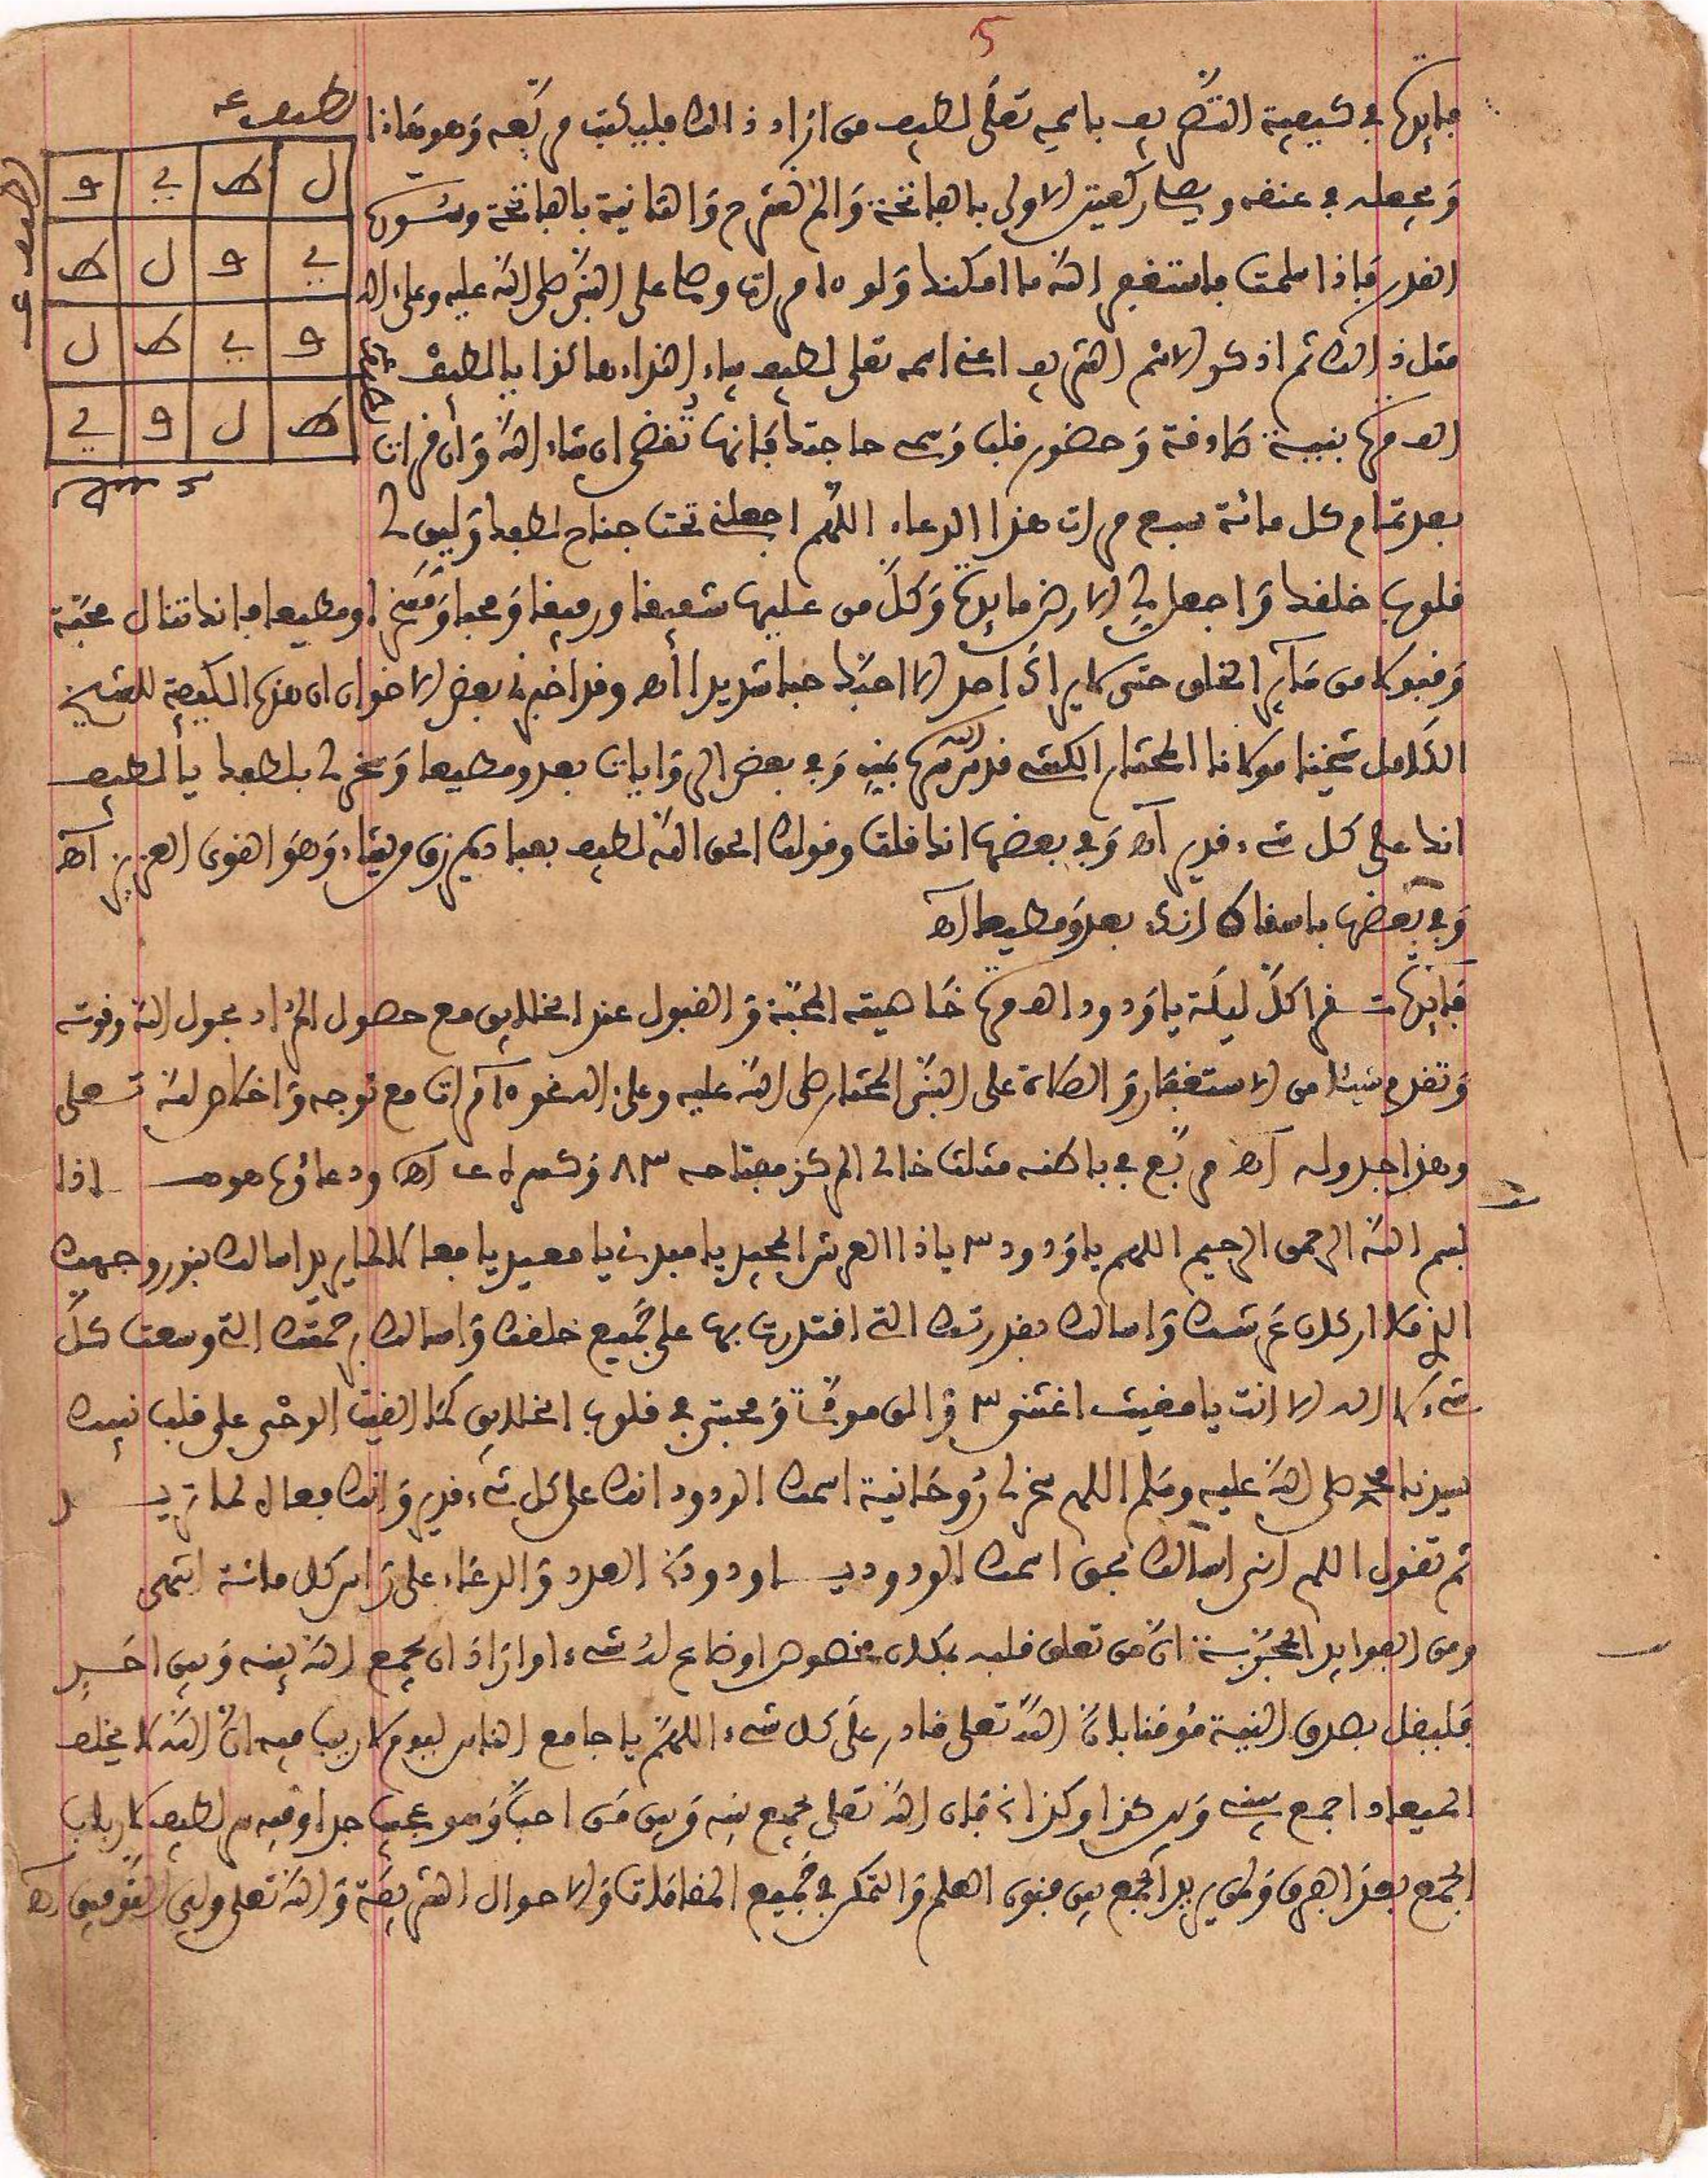 5
فايدة في كيفية التصريف باسمه تعلى لطيف من اراد ذالك فليكتب مربعه وهو هاذا
لطيف عه
ل ط ي ف
ي ف ل ط
ف ي ط ل
ط ل ف ي
ويجعله في عنقه ويصل ركعتين الاولى بالفاتحة والم نشرح والثانية بالفاتحة وسورة
القدر فاذا سلمت فاستغفر الله ما امكنك ولو ١٥ مرات وصل على النبي صلى الله عليه وعلى اله
مثل ذالك ثم اذكر الاسم الشريف اعني اسمه تعلى لطيف بياء النداء هاكذا يا لطيف
الف مرة بنية صادقة وحضور قلب وسم حاجتك فانها تقضى ان شاء الله وان قرات
بعد تمام كل مائة سبع مرات هذا الدعاء اللهم اجعلني تحت جناح لطفك وليّن لي
قلوب خلقك واجعل لي الارض مايدة وكل من عليها شفيقا ورفيقا ومحبا ومسخرا ومطيعا فانك تنال محبة
وقبولا من ساير الخلق حتى لا يراك احد الا احبك حبا شديدا اه وقد اخبرني بعض الاخوان ان هذه الكيفية للشيخ
الكامل شيخنا مولانا المختار الكنتي قدس الله سره وفي بعض الروايات بعد ومطيعا وسخر لي بلطفك يا لطيف
انك على كل شيء قدير اه وفي بعضها انك قلت وقولك الحق الله لطيف بعباده يرزق من يشاء وهو القوي العزيز اه
وفي بعضها باسقاط انك بعد ومطيعا اه
فايدة من قرا كل ليلة يا ودود الف مرة خاصيته المحبة والقبول عند الخلايق مع حصول المراد بحول الله وقوته
وتقدم شيئا من الاستغفار والصلاة على النبي المختار صلى الله عليه وعلى اله نحو ١٥ مرات مع توجه واخلاص لله تعلى
وهذا جدوله اه مربع في باطنه مثلث خالي المركز مفتاحه ٨٣ ودعاؤه هو هذا
بسم الله الرحمن الرحيم اللهم يا ودود ٣ يا ذا العرش المجيد يا مبدئ يا معيد يا فعالا لما يريد اسالك بنور وجهك
الذي ملا اركان عرشك واسالك بقدرتك التي اقتدرت بها على جميع خلقك واسالك برحمتك التي وسعت كل
شيء لا اله الا انت يا مغيث اغثني ٣ والق مودتي ومحبتي في قلوب الخلايق كما القيت الوحي على قلب نبيك
سيدنا محمد صلى الله عليه وسلم اللهم سخر لي روحانية اسمك الودود انك على كل شيء قدير وانك فعال لما تريد
ثم تقول اللهم اني اسالك بحق اسمك الودود يا ودود العدد والدعاء على راس كل مائة انتهى
ومن الفوايد المجربة ان من تعلق قلبه بمكان مخصوص او ضاع له شيء او اراد ان يجمع الله بينه وبين احد
فليقل بصدق النية موقنا بان الله تعلى قادر على كل شيء اللهم يا جامع الناس ليوم لا ريب فيه ان الله لا يخلف
الميعاد اجمع بيني وبين كذا وكذا فان الله تعلى يجمع بينه وبين من احب وهو عجيب جدا وفيه سر لطيف لارباب
الجمع بعد الفرق ولمن يريد الجمع بين فنون العلم والتمكن في جميع المقامات والاحوال الشريفة والله تعلى ولي التوفيق اه